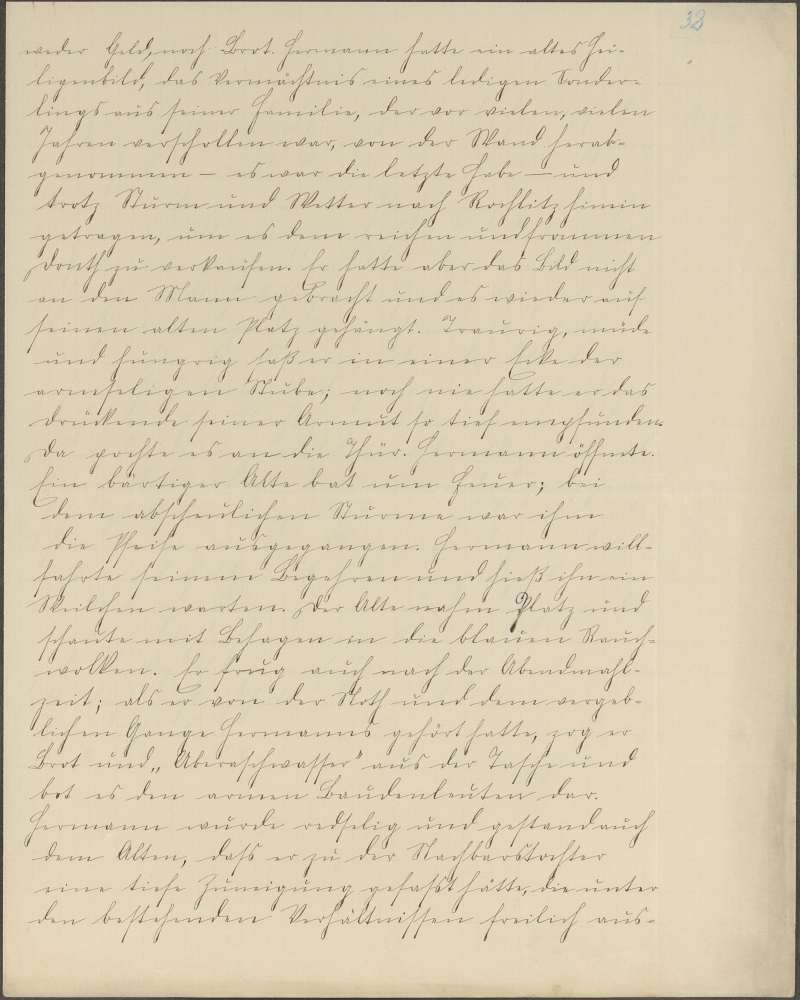 33
weder Geld, noch Brot. Hermann hatte ein altes Hei-
ligenbild, das Vermächtnis eines ledigen Sonder-
lings aus seiner Familie, der vor vielen, vielen
Jahren verschollen war, von der Wand herab-
genommen – es war die letzte Habe – und
trotz Sturm und Wetter nach Rochlitz hinein
getragen, um es dem reichen und frommen
Donth zu verkaufen. Er hatte aber das Bild nicht
an den Mann gebracht und es wieder auf
seinen alten Platz gehängt. Traurig, müde
und hungrig saß er in einer Ecke der
armseligen Stube; noch nie hatte er das
drückende seiner Armut so tief empfunden.
Da pochte es an die Thür. Hermann öffnete.
Ein bärtiger Alte bat um Feuer; bei
dem abscheulichen Sturme war ihm
die Pfeife ausgegangen. Hermann will-
fahrte seinem Begehren und hieß ihn ein
Weilchen warten. Der Alte nahm Platz und
schaute mit Behagen in die blauen Rauch-
wolken. Er frug auch nach der Abendmahl-
zeit; als er von der Noth und dem vergeb-
lichen Gange Hermanns gehört hatte, zog er
Brot und „Aberaschwasser" aus der Tasche und
bot es den armen Baudenleuten dar.
Hermann wurde redselig und gestand auch
dem Alten, dass er zu der Nachbarstochter
eine tiefe Zuneigung gefasst hätte, die unter
den bestehenden Verhältnissen freilich aus-